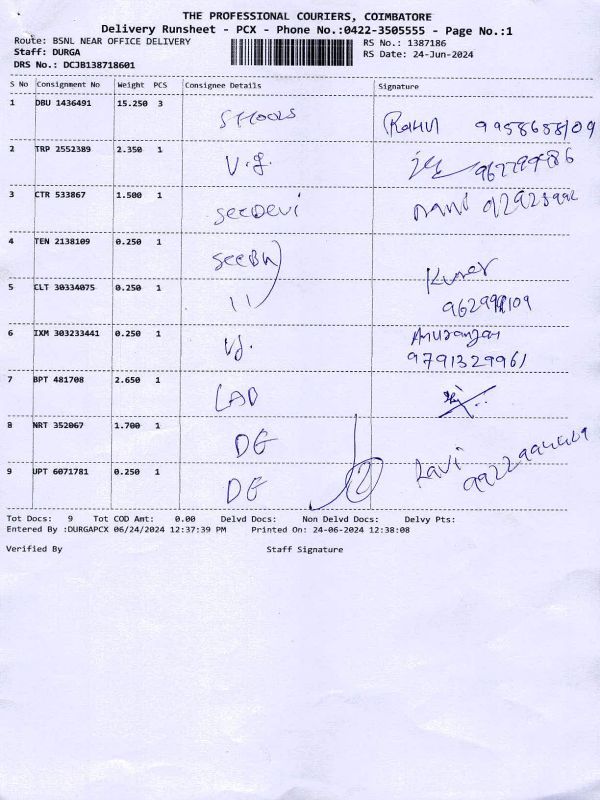 THE PROFESSIONAL COURIERS, COIMBATORE
Delivery Runsheet - PCX - Phone No.:0422-3505555 - Page No.:1
Route: BSNL NEAR OFFICE DELIVERY RS No.: 1387186
Staff: DURGA RS Date: 24-Jun-2024
DRS No.: DCJB138718601
S No Consignment No Weight PCS Consignee Details Signature
1 DBU 1436491 15.250 3 Rahul
2 TRP 2552389 2.350 1 V.g.
3 CTR 533867 1.500 1 seeDevi
4 TEN 2138109 0.250 1
5 CLT 30334075 0.250 1 11 Kumar
6 IXM 303233441 0.250 1
9791329961
7 BPT 481708 2.650 1
8 NRT 352067 1.700 1 DG
9 UPT 6071781 0.250 1 DG Ravi
Tot Docs: 9 Tot COD Amt: 0.00 Delvd Docs: Non Delvd Docs: Delvy Pts:
Entered By :DURGAPCX 06/24/2024 12:37:39 PM Printed On: 24-06-2024 12:38:08
Verified By Staff Signature